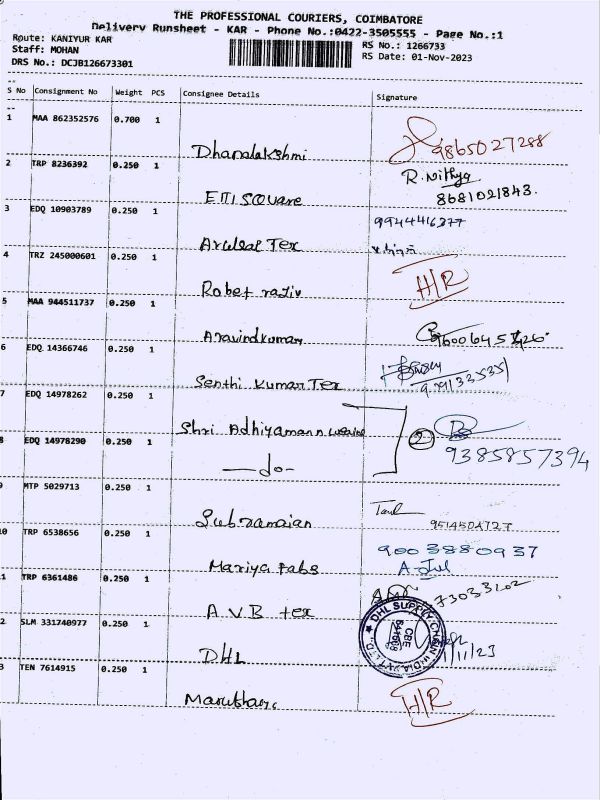 THE PROFESSIONAL COURIERS, COIMBATORE
Delivery Runsheet - KAR - Phone No.:0422-3505555 - Page No.:1
Route: KANIYUR KAR
Staff: MOHAN
DRS No.: DCJB126673301
RS No.: 1266733
RS Date: 01-Nov-2023
S No Consignment No Weight PCS Consignee Details Signature
1 MAA 862352576 0.700 1
Dhanalakshmi 9865027288
2 TRP 8236392 0.250 1 R. Nithya
8681021843.
3 EDQ 10903789 0.250 1 9944416377
Tex
4 TRZ 245000601 0.250 1 H/R
Robet rajiv
5 MAA 944511737 0.250 1
Aravindkumar
6 EDQ 14366746 0.250 1
Senthi Kumar Tex
7 EDQ 14978262 0.250 1
Shri Adhiyamann
8 EDQ 14978290 0.250 1 2 9385857394
-do-
9 MTP 5029713 0.250 1
Subramaian
10 TRP 6538656 0.250 1 9003880937
Mariya Fabs
1 TRP 6361486 0.250 1
A.V.B tex
2 SLM 331740977 0.250 1 DHL SUPPLY CHAIN INDIA PVT LTD. CBE
DHL 1/11/23
3 TEN 7614915 0.250 1 H/R